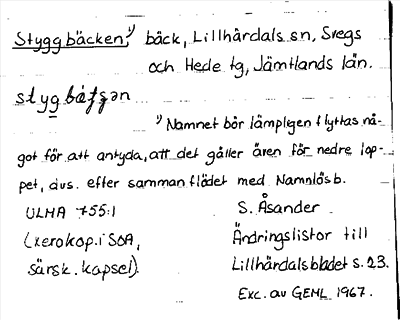 Styggbäcken,¹⁾ bäck, Lillhärdals sn, Svegs
och Hede tg, Jämtlands län.
¹⁾ Namnet bör lämpligen flyttas nå-
got för att antyda, att det gäller åren för nedre lop-
pet, dvs. efter sammanflödet med Namnlösb.
ULMA 755:1
(xerokop. i SOA,
särsk. kapsel).
S. Åsander
Ändringslistor till
Lillhärdalsbladet s. 23.
Exc. av GEHL 1967.